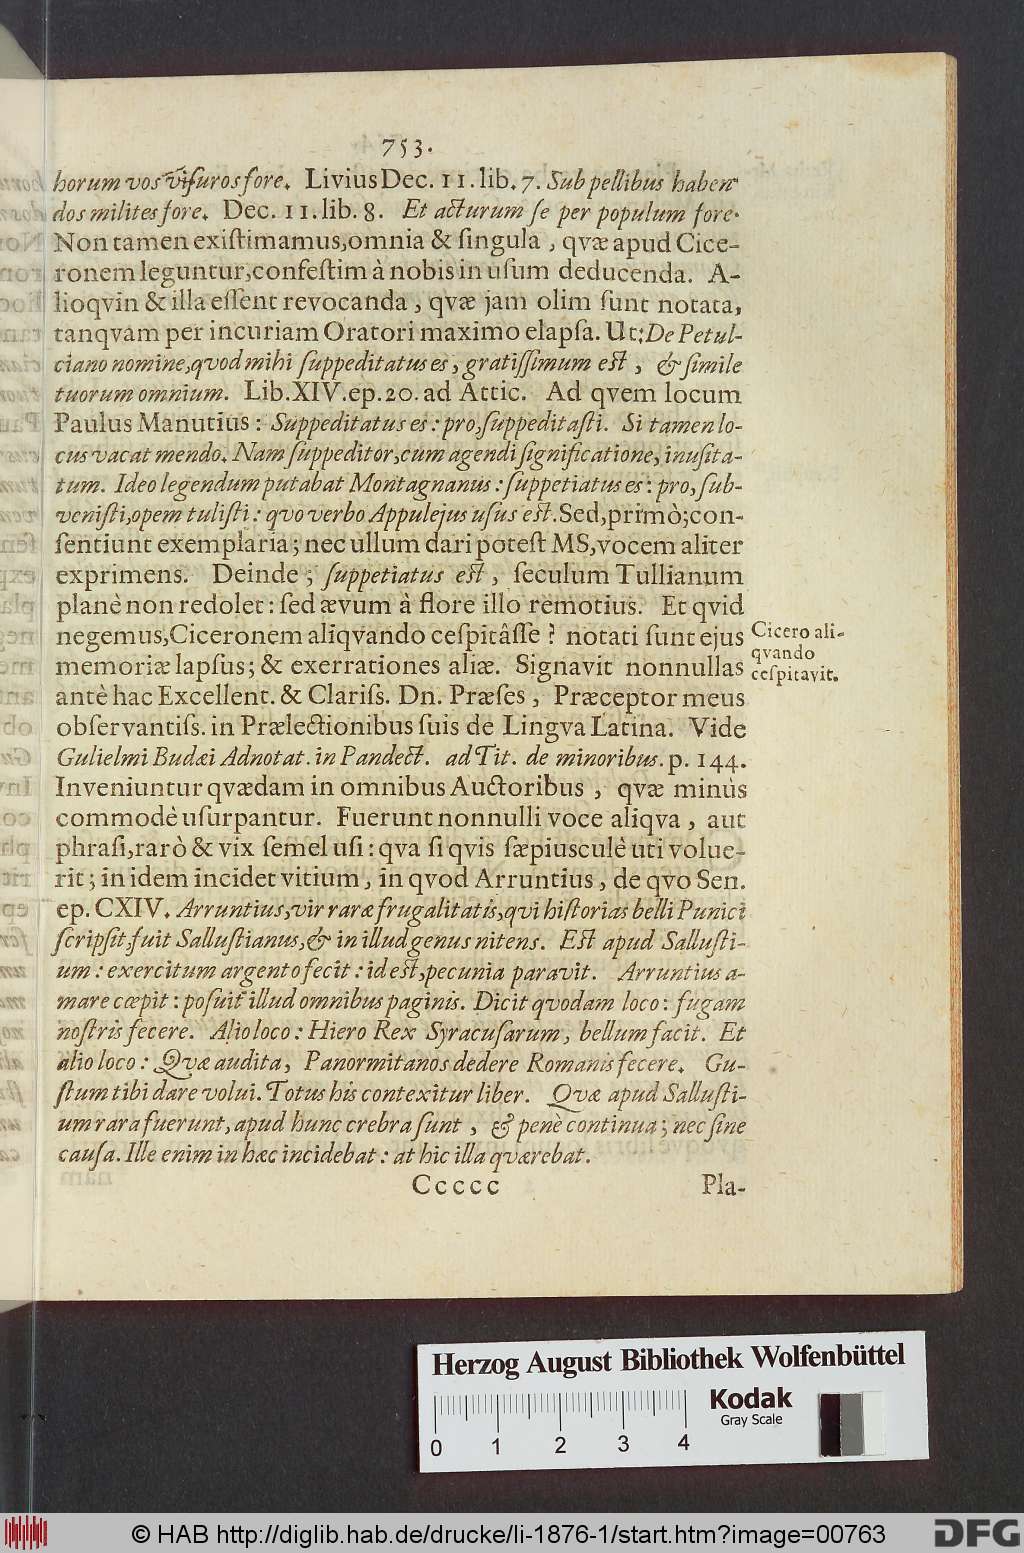 753.
horum vos viſuros fore. Livius Dec. 11. lib. 7. Sub pellibus haben
dos milites fore. Dec. 11. lib. 8. Et acturum ſe per populum fore.
Non tamen exiſtimamus, omnia & ſingula, qvæ apud Cice-
ronem leguntur, confeſtim à nobis in uſum deducenda. A-
lioqvin & illa eſſent revocanda, qvæ jam olim ſunt notata,
tanqvam per incuriam Oratori maximo elapſa. Ut; De Petul-
ciano nomine, qvod mihi ſuppeditatus es, gratiſſimum eſt, & ſimile
tuorum omnium. Lib. XIV. ep. 20. ad Attic. Ad qvem locum
Paulus Manutius: Suppeditatus es: pro, ſuppeditaſti. Si tamen lo-
cus vacat mendo. Nam ſuppeditor, cum agendi ſignificatione, inuſita-
tum. Ideo legendum putabat Montagnanus: ſuppetiatus es: pro, ſub-
veniſti, opem tuliſti: qvo verbo Appulejus uſus eſt. Sed, primò; con-
ſentiunt exemplaria; nec ullum dari poteſt MS, vocem aliter
exprimens. Deinde; ſuppetiatus eſt, ſeculum Tullianum
planè non redolet: ſed ævum â flore illo remotius. Et qvid
negemus, Ciceronem aliqvando ceſpitâſſe? notati ſunt ejus
memoriæ lapſus; & exerrationes aliæ. Signavit nonnullas
antè hac Excellent. & Clariſſ. Dn. Præſes, Præceptor meus
obſervantiſſ. in Prælectionibus ſuis de Lingva Latina. Vide
Gulielmi Budæi Adnotat. in Pandect. ad Tit. de minoribus. p. 144.
Inveniuntur qvædam in omnibus Auctoribus, qvæ minùs
commodè uſurpantur. Fuerunt nonnulli voce aliqva, aut
phraſi, rarò & vix ſemel uſi: qva ſi qvis ſæpiusculè uti volue-
rit; in idem incidet vitium, in qvod Arruntius, de qvo Sen.
ep. CXIV. Arruntius, vir raræ frugalitatis, qvi hiſtorias belli Punici
ſcripſit, fuit Salluſtianus, & in illud genus nitens. Eſt apud Salluſti-
um: exercitum argento fecit: id eſt, pecunia paravit. Arruntius a-
mare cœpit: poſuit illud omnibus paginis. Dicit qvodam loco: fugam
noſtris fecere. Alio loco: Hiero Rex Syracuſarum, bellum facit. Et
alio loco: Qvæ audita, Panormitanos dedere Romanis fecere. Gu-
ſtum tibi dare volui. Totus his contexitur liber. Qvæ apud Salluſti-
um rara fuerunt, apud hunc crebra ſunt, & penè continua; nec ſine
cauſa. Ille enim in hæc incidebat: at hic illa qværebat.
Ccccc Pla-
Cicero ali-
qvando
ceſpitavit.
Herzog August Bibliothek Wolfenbüttel
Kodak
Gray Scale
0 1 2 3 4
© HAB http://diglib.hab.de/drucke/li-1876-1/start.htm?image=00763
DFG